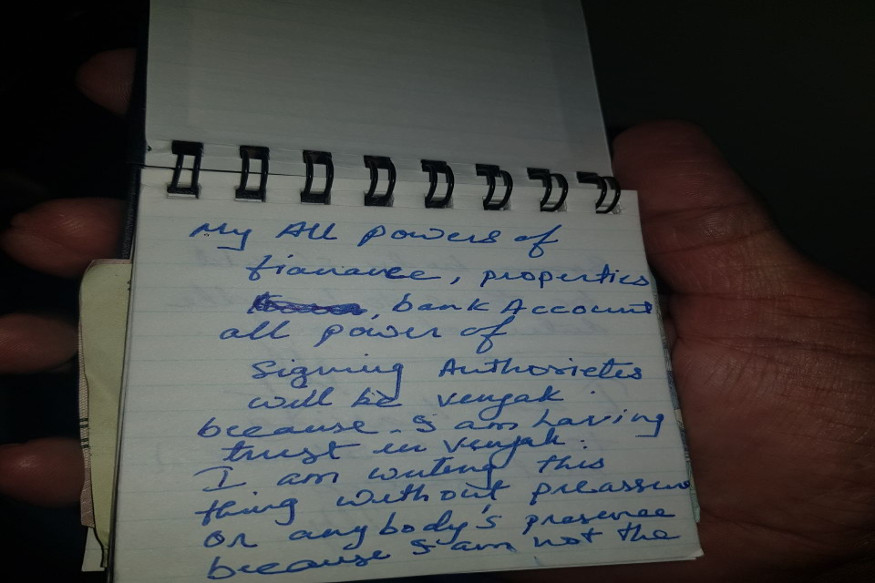 My All powers of
fianance, properties
, bank Account
all power of
Signing Authorietes
will be venyak.
because. I am having
trust in Venyak.
I am writeng this
thing without preassure
or any body's presence
because I am not the